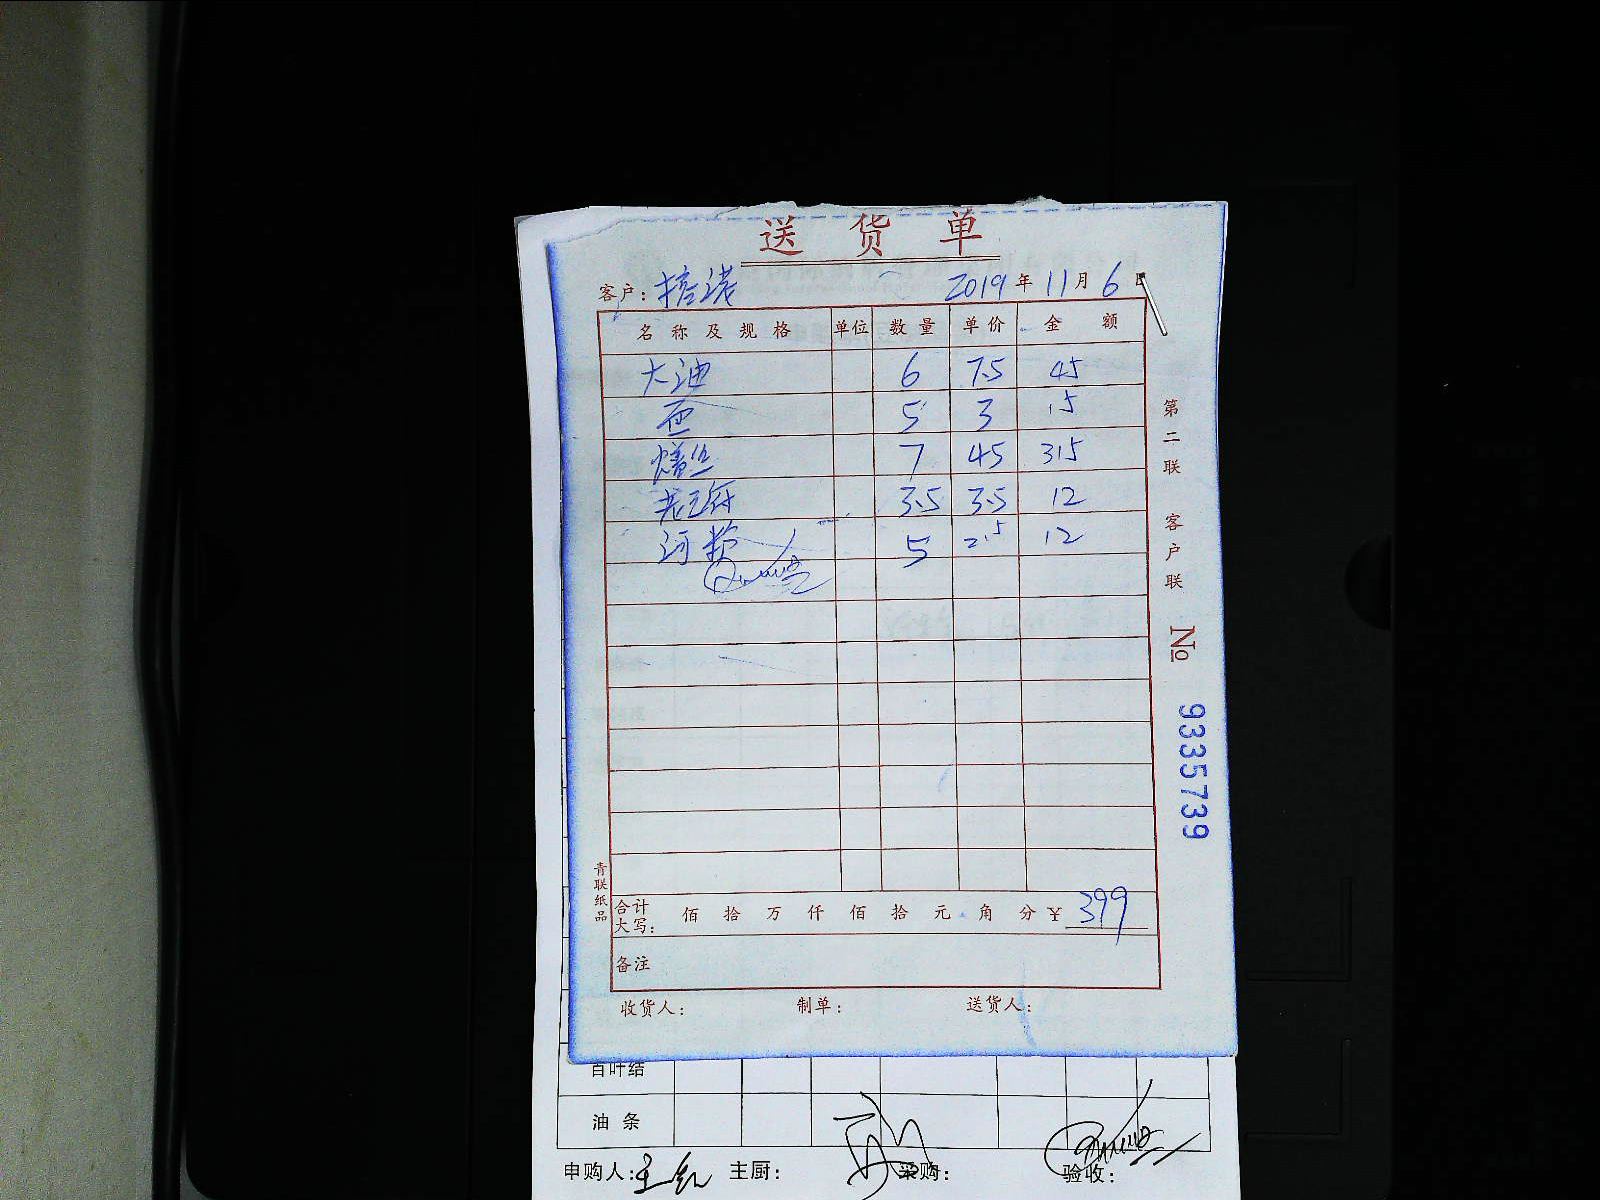 送货单
客户: 2019年11月6日
名称及规格 单位 数量 单价 金额
大油 6 7.5 45
5 3 15
7 45 315
3.5 3.5 12
河粉 5 2.5 12
合计大写: 佰 拾 万 仟 佰 拾 元 角 分 ¥ 399
备注
收货人: 制单: 送货人:
第二联 客户联
No 9335739
青联纸品
百叶结
油条
申购人: 主厨: 采购: 验收: